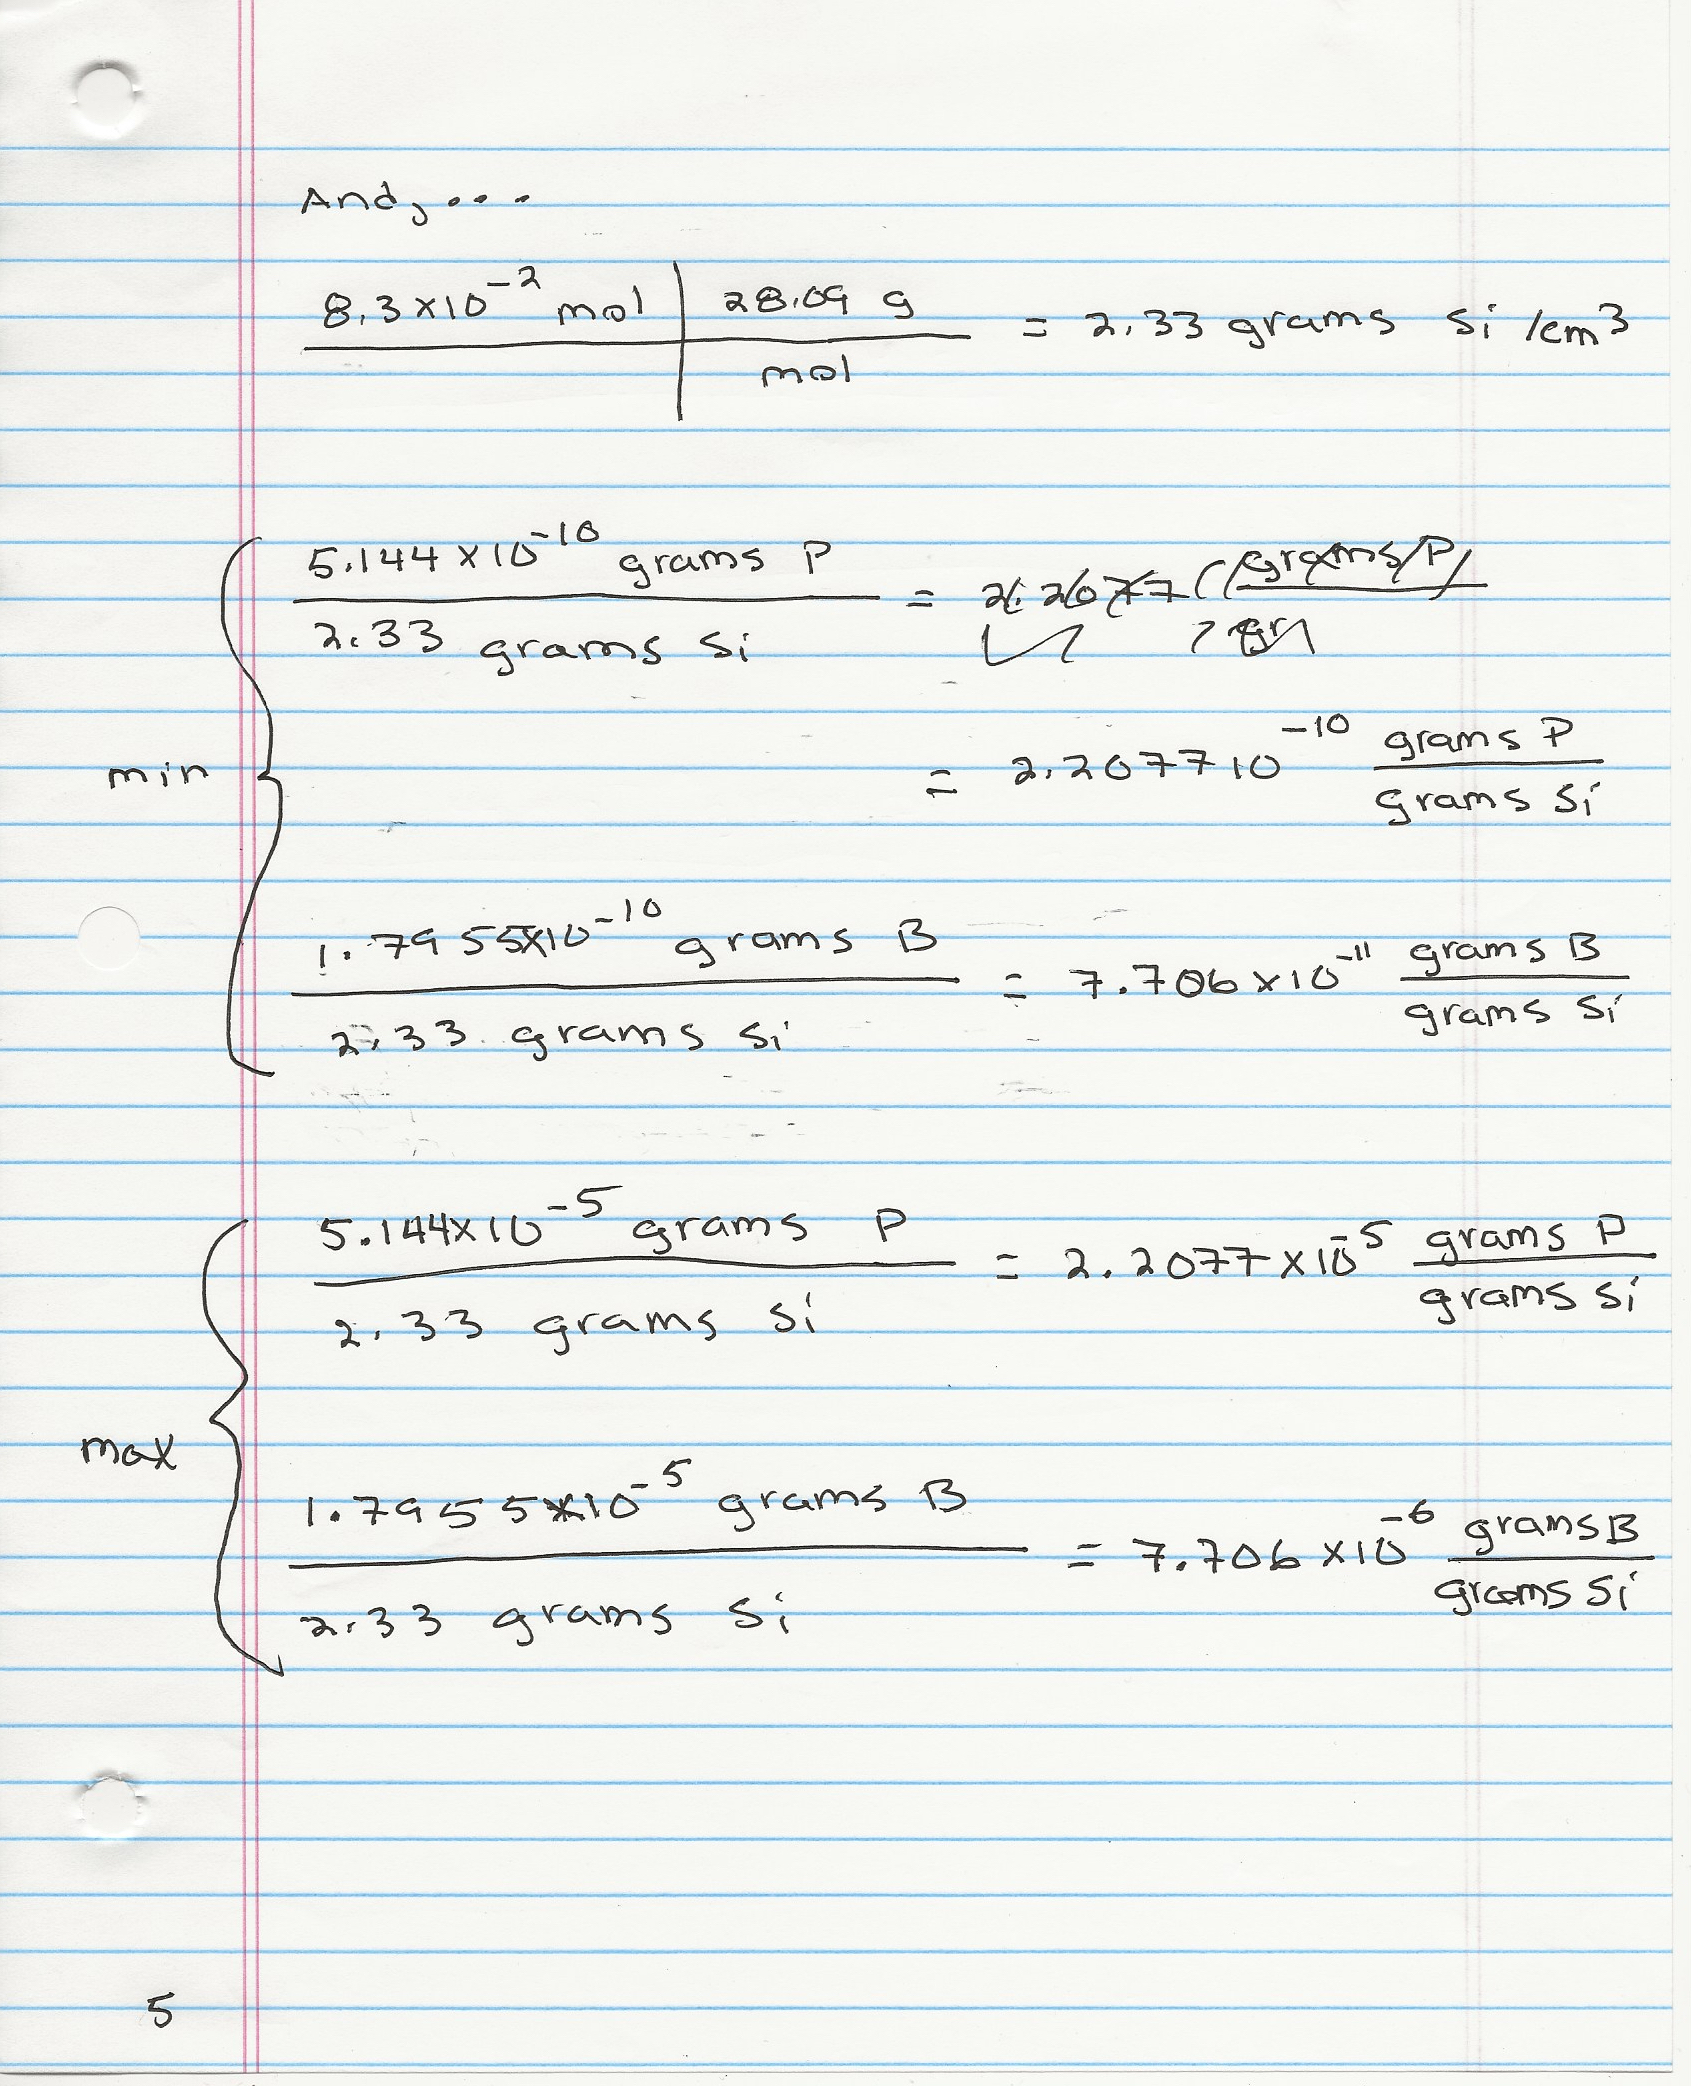 And, ....
8.3 x 10⁻² mol | 28.09 g
mol
= 2.33 grams Si /cm³
5.144 x 10⁻¹⁰ grams P
2.33 grams Si
=
= 2.2077 10⁻¹⁰ grams P
grams Si
min
1.7955x10⁻¹⁰ grams B
2.33 grams Si
= 7.706 x 10⁻¹¹ grams B
grams Si
5.144x10⁻⁵ grams P
2.33 grams Si
= 2.2077 x 10⁻⁵ grams P
grams Si
max
1.7955x10⁻⁵ grams B
2.33 grams Si
= 7.706 x 10⁻⁶ grams B
grams Si
5